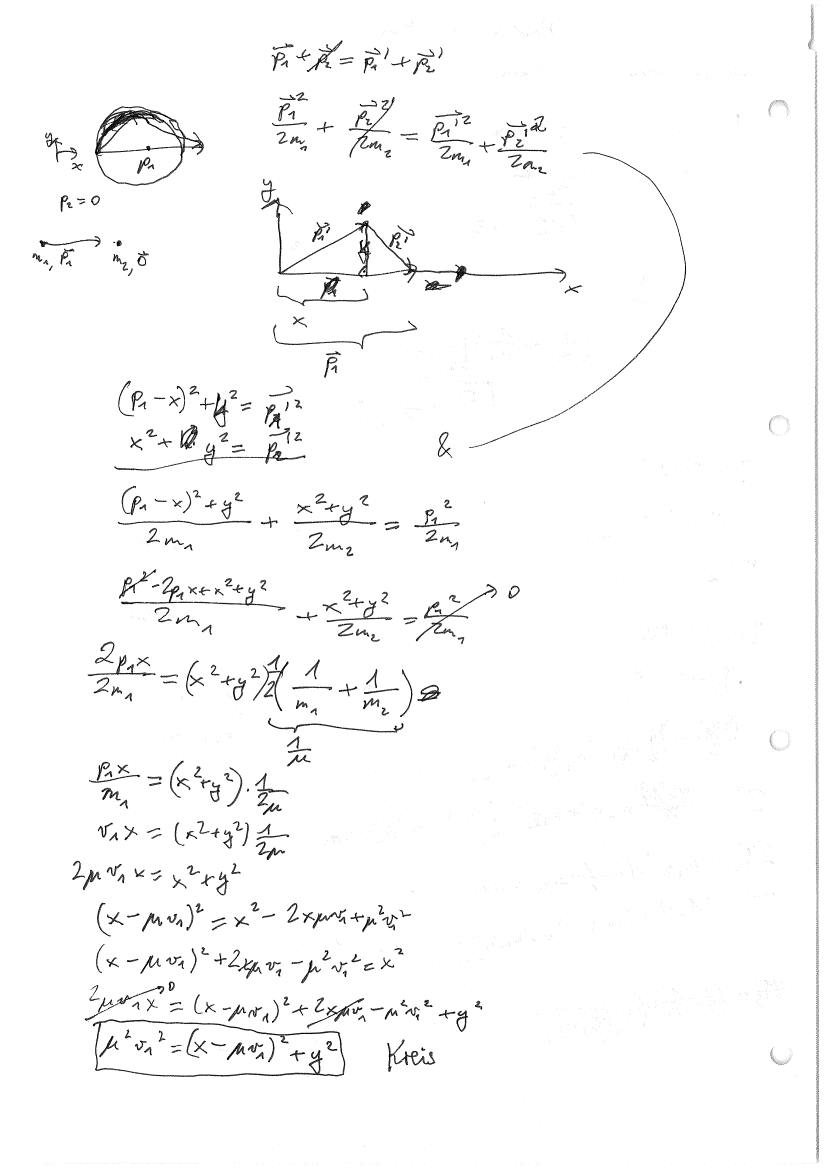 p⃗₁ + p⃗₂ = p⃗₁' + p⃗₂'
p⃗₁²/2m₁ + p⃗₂²/2m₂ = p⃗₁'²/2m₁ + p⃗₂'²/2m₂
y
x
p₁
p₂ = 0
m₁, p⃗₁ m₂, 0⃗
y
p⃗₁' p⃗₂'
x
x
p⃗₁
(p₁ - x)² + y² = p⃗₁'²
x² + y² = p⃗₂'²
&
((p₁ - x)² + y²)/2m₁ + (x² + y²)/2m₂ = p₁²/2m₁
(p₁² - 2p₁x + x² + y²)/2m₁ + (x² + y²)/2m₂ = p₁²/2m₁ → 0
2p₁x/2m₁ = (x² + y²) 1/2 (1/m₁ + 1/m₂)
1/μ
p₁x/m₁ = (x² + y²) · 1/2μ
v₁x = (x² + y²) 1/2μ
2μv₁x = x² + y²
(x - μv₁)² = x² - 2xμv₁ + μ²v₁²
(x - μv₁)² + 2xμv₁ - μ²v₁² = x²
2μv₁x → 0 = (x - μv₁)² + 2xμv₁ - μ²v₁² + y²
μ²v₁² = (x - μv₁)² + y² Kreis